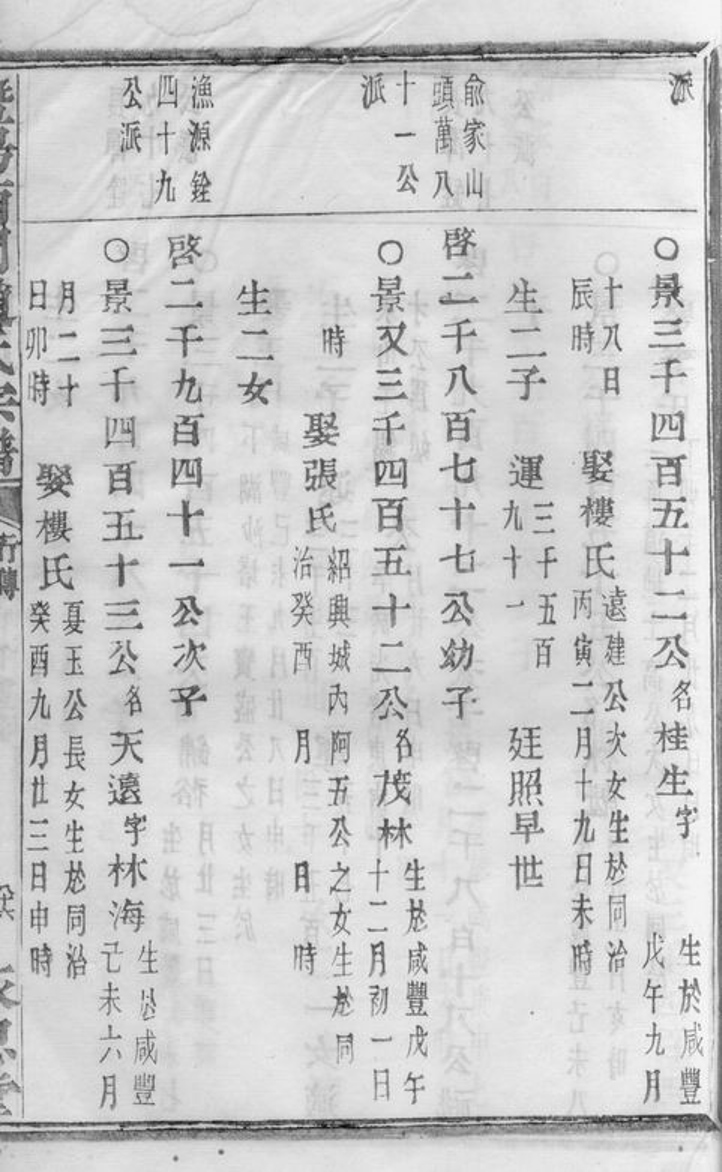 派
○景三千四百五十二公名桂生字 生於咸豐戊午九月
十八日辰時 娶樓氏遠建公次女生於同治丙寅二月十九日未時
生二子 運三千五百九十一 廷照早世
俞家山頭萬八十一公派
啓二千八百七十七公幼子
○景又三千四百五十二公名茂林生於咸豐戊午十二月初一日
時 娶張氏紹興城內阿五公之女生於同治癸酉 月 日 時
生二女
漁源銓四十九公派
啓二千九百四十一公次子
○景三千四百五十三公名天遠字林海生於咸豐己未六月
月二十日卯時 娶樓氏夏玉公長女生於同治癸酉九月廿三日申時
行傳